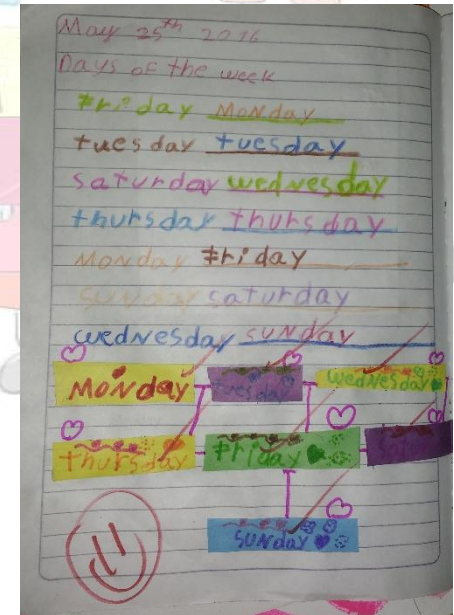 May 25th 2016
Days of the week
Friday Monday
tuesday tuesday
saturday wednesday
thursday thursday
Monday Friday
sunday saturday
wednesday sunday
Monday tuesday wednesday
thursday Friday
sunday